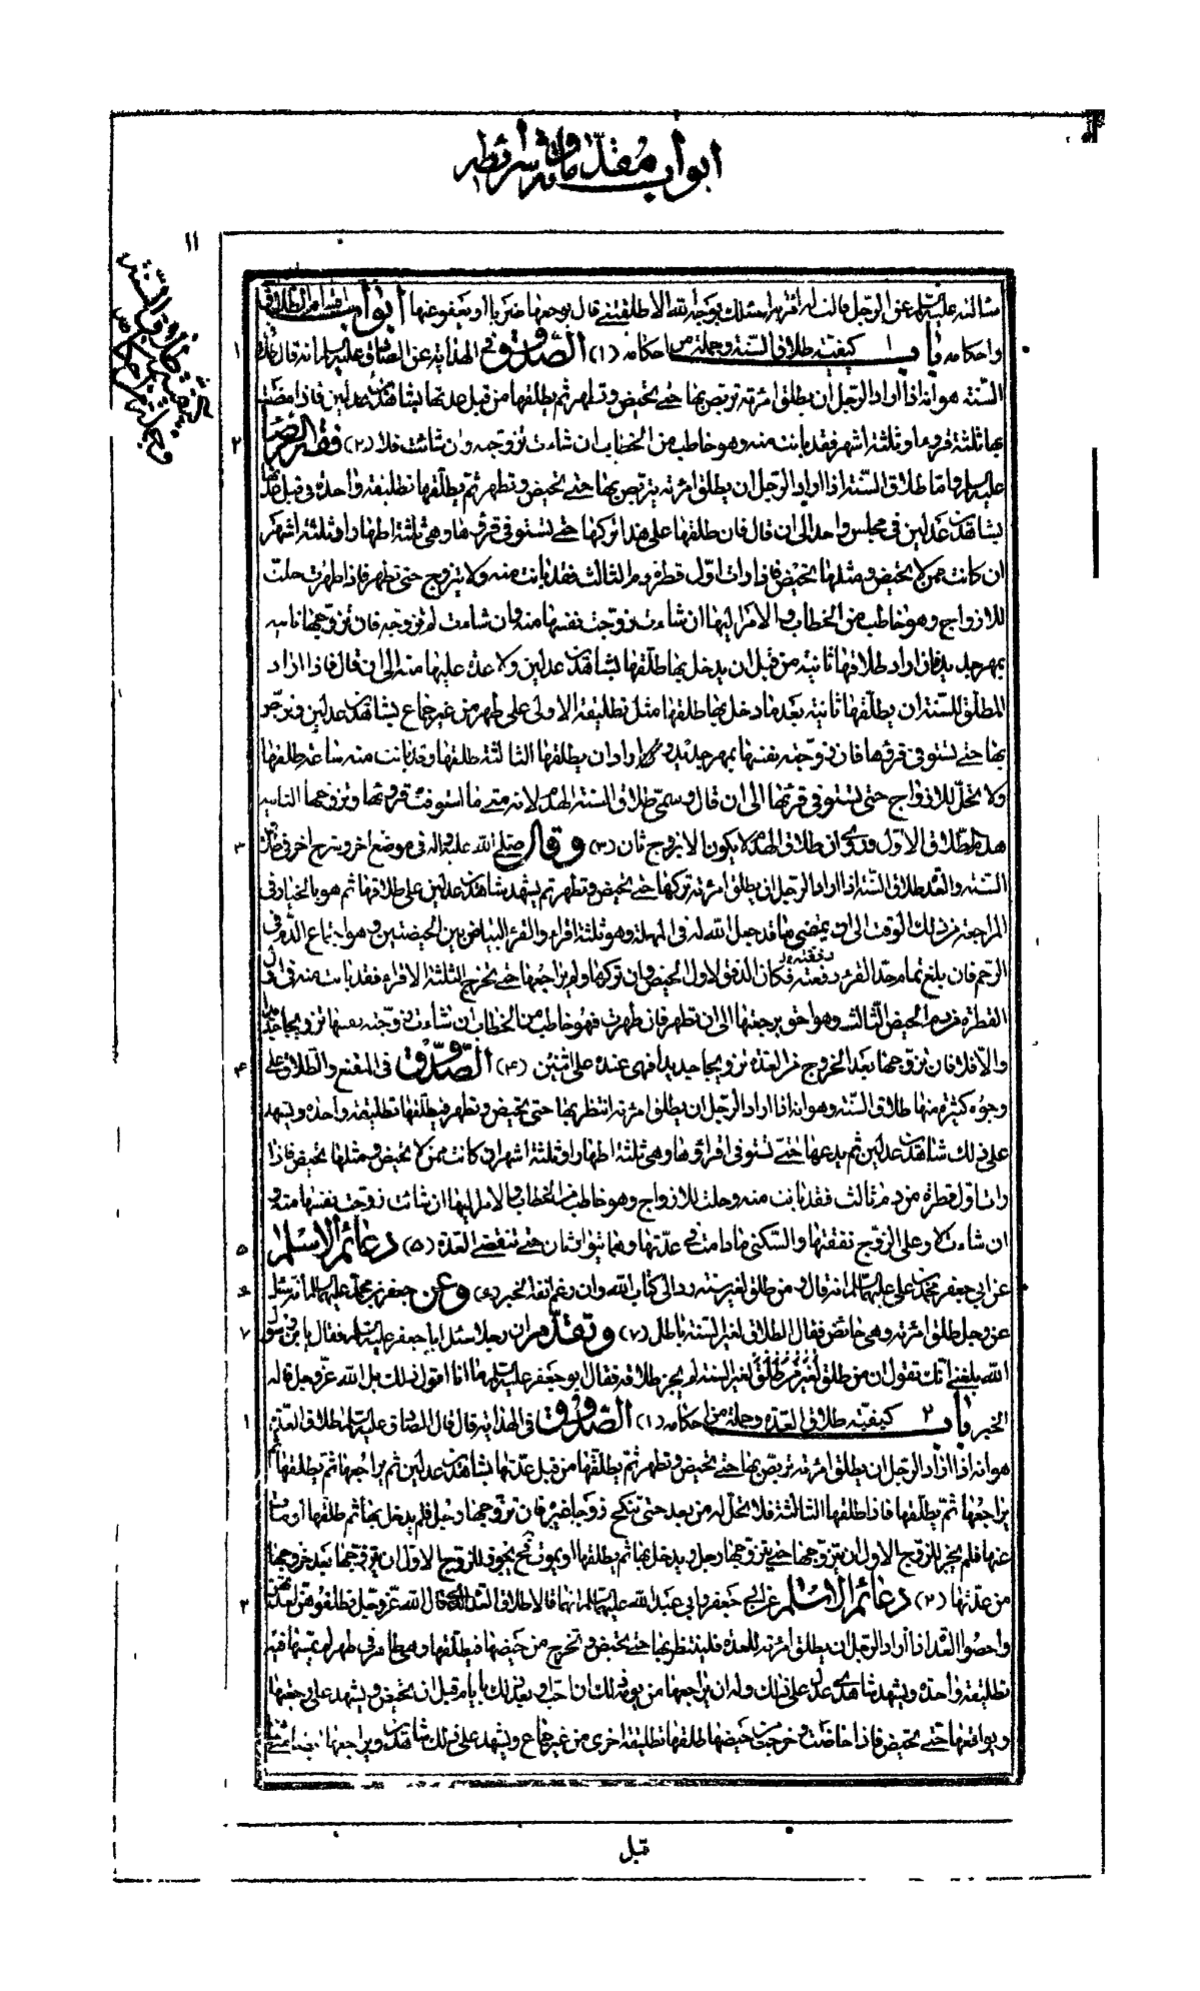 ابواب مقدماته وشرائطه
١١
كيفية طلاق السنة وجملة من احكامه
سألته عليه السلام عن الرجل قالت له امرأته اسئلك بوجه الله الا طلقتني قال يوجعها ضربا او يعفو عنها ابواب اقسام الطلاق
واحكامه باب ١ كيفية طلاق السنة وجملة من احكامه (١) الصدوق في الهداية عن الصادق عليه السلام انه قال طلاق
السنة هو انه اذا اراد الرجل ان يطلق امرئته تربص بها حتى تحيض وتطهر ثم يطلقها من قبل عدتها بشاهدين عدلين فاذا مضت
بها ثلثة قروء او ثلثة اشهر فقد بانت منه وهو خاطب من الخطاب ان شاءت تزوجته وان شائت فلا (٢) فقه الرضا
عليه السلام واما طلاق السنة اذا اراد الرجل ان يطلق امرئته يتربص بها حتى تحيض وتطهر ثم يطلقها تطليقة واحدة في قبل عدتها
بشاهدين عدلين في مجلس واحد الى ان قال فان طلقها على هذا تركها حتى تستوفي قروءها وهي ثلثة اطهار او ثلثة اشهر
ان كانت ممن لا تحيض ومثلها تحيض فاذا رات اول قطرة من دم الثالث فقد بانت منه ولا تتزوج حتى تطهر فاذا طهرت حلت
للازواج وهو خاطب من الخطاب والامر اليها ان شاءت زوجت نفسها منه وان شاءت لم تزوجه فان تزوجها ثانية
بمهر جديد فان اراد طلاقها ثانية من قبل ان يدخل بها طلقها بشاهدين عدلين ولا عدة عليها منه الى ان قال فاذا اراد
المطلق للسنة ان يطلقها ثانية بعد ما دخل بها طلقها مثل تطليقة الاولى على طهر من غير جماع بشاهدين عدلين ويتربص
بها حتى تستوفي قروءها فان زوجته نفسها بمهر جديد واراد ان يطلقها الثالثة طلقها وقد بانت منه ساعة طلقها
ولا تحل للازواج حتى تستوفي قروئها الى ان قال وسمي طلاق السنة الهدم لانه متى ما استوفت قروئها وتزوجها الثانية
هدم الطلاق الاول وروي ان طلاق الهدم لا يكون الا بزوج ثان (٣) وقال صلى الله عليه واله في موضع اخر
السنة والعدة طلاق السنة اذا اراد الرجل ان يطلق امرئته تركها حتى تحيض وتطهر ثم يشهد شاهدين عدلين على طلاقها ثم هو بالخيار في
المراجعة من ذلك الوقت الى ان يمضي ما قد جعل الله له في المهلة وهو ثلثة اقراء والقرء البياض بين الحيضتين وهو اجتماع الدم في
الرحم فان بلغ تمام حد القرء دفعته فكان الدفق لاول الحيض وان تركها ولم يراجعها حتى تخرج الثلثة الاقراء فقد بانت منه في اول
القطرة من دم الحيض الثالث وهو احق برجعتها الى ان تطهر فان طهرت فهو خاطب من الخطاب ان شاءت زوجته نفسها تزويجا جديدا
والا فلا فان تزوجها بعد الخروج من العدة تزويجا جديدا فهي عنده على اثنتين (٤) الصدوق في المقنع والطلاق على
وجوه كثيرة منها طلاق السنة وهو انه اذا اراد الرجل ان يطلق امرئته انتظر بها حتى تحيض وتطهر فيطلقها تطليقة واحدة ويشهد
على ذلك شاهدين عدلين ثم يدعها حتى تستوفي اقراؤها وهي ثلثة اطهار او ثلثة اشهر ان كانت ممن لا تحيض ومثلها تحيض فاذا
رات اول قطرة من دم ثالث فقد بانت منه وحلت للازواج وهو خاطب من الخطاب والامر اليها ان شائت زوجت نفسها منه و
ان شاءت لا وعلى الزوج نفقتها والسكنى ما دامت في عدتها وهما يتوارثان حتى تنقضي العدة (٥) دعائم الاسلام
عن ابي جعفر محمد بن علي عليهما السلام انه قال من طلق لغير سنة رد الى كتاب الله وان رغم انفه الخبر (٦) وعن جعفر بن محمد عليهما السلام انه سئل
عن رجل طلق امرئته وهي حائض فقال الطلاق لغير السنة باطل (٧) وتقدم ان رجلا سئل ابا جعفر عليه السلام فقال يابن رسول
الله بلغني انك تقول ان من طلق لغير السنة لم يجز طلاقه فقال ابو جعفر عليه السلام ما انا اقول ذلك بل الله عز وجل قاله
الخبر باب ٢ كيفية طلاق العدة وجملة من احكامه (١) الصدوق في الهداية قال قال الصادق عليه السلام طلاق العدة
هو انه اذا اراد الرجل ان يطلق امرئته تربص بها حتى تحيض وتطهر ثم يطلقها من قبل عدتها بشاهدين عدلين ثم يراجعها ثم يطلقها ثم
يراجعها ثم يطلقها فاذا طلقها الثالثة فلا تحل له من بعد حتى تنكح زوجا غيره فان تزوجها رجل فلم يدخل بها ثم طلقها او مات
عنها فلم يجز للزوج الاول ان يتزوجها حتى يتزوجها رجل ويدخل بها ثم يطلقها او يموت فحينئذ يجوز للزوج الاول ان يتزوجها بعد خروجها
من عدتها (٢) دعائم الاسلام عن ابي جعفر وابي عبد الله عليهما السلام انهما قالا طلاق العدة قال الله عز وجل فطلقوهن لعدتهن
واحصوا العدة اذا اراد الرجل ان يطلق امرئته للعدة فلينتظر بها حتى تحيض وتخرج من حيضها فيطلقها وهي طاهر في طهر لم يمسها فيه
تطليقة واحدة ويشهد شاهدي عدل على ذلك وله ان يراجعها من يومه ذلك ان احب او بعد ذلك بايام قبل ان تحيض ويشهد على رجعتها
ويواقعها حتى تحيض فاذا حاضت وخرجت من حيضها طلقها تطليقة اخرى من غير جماع ويشهد على ذلك شاهدين ويراجعها
قبل